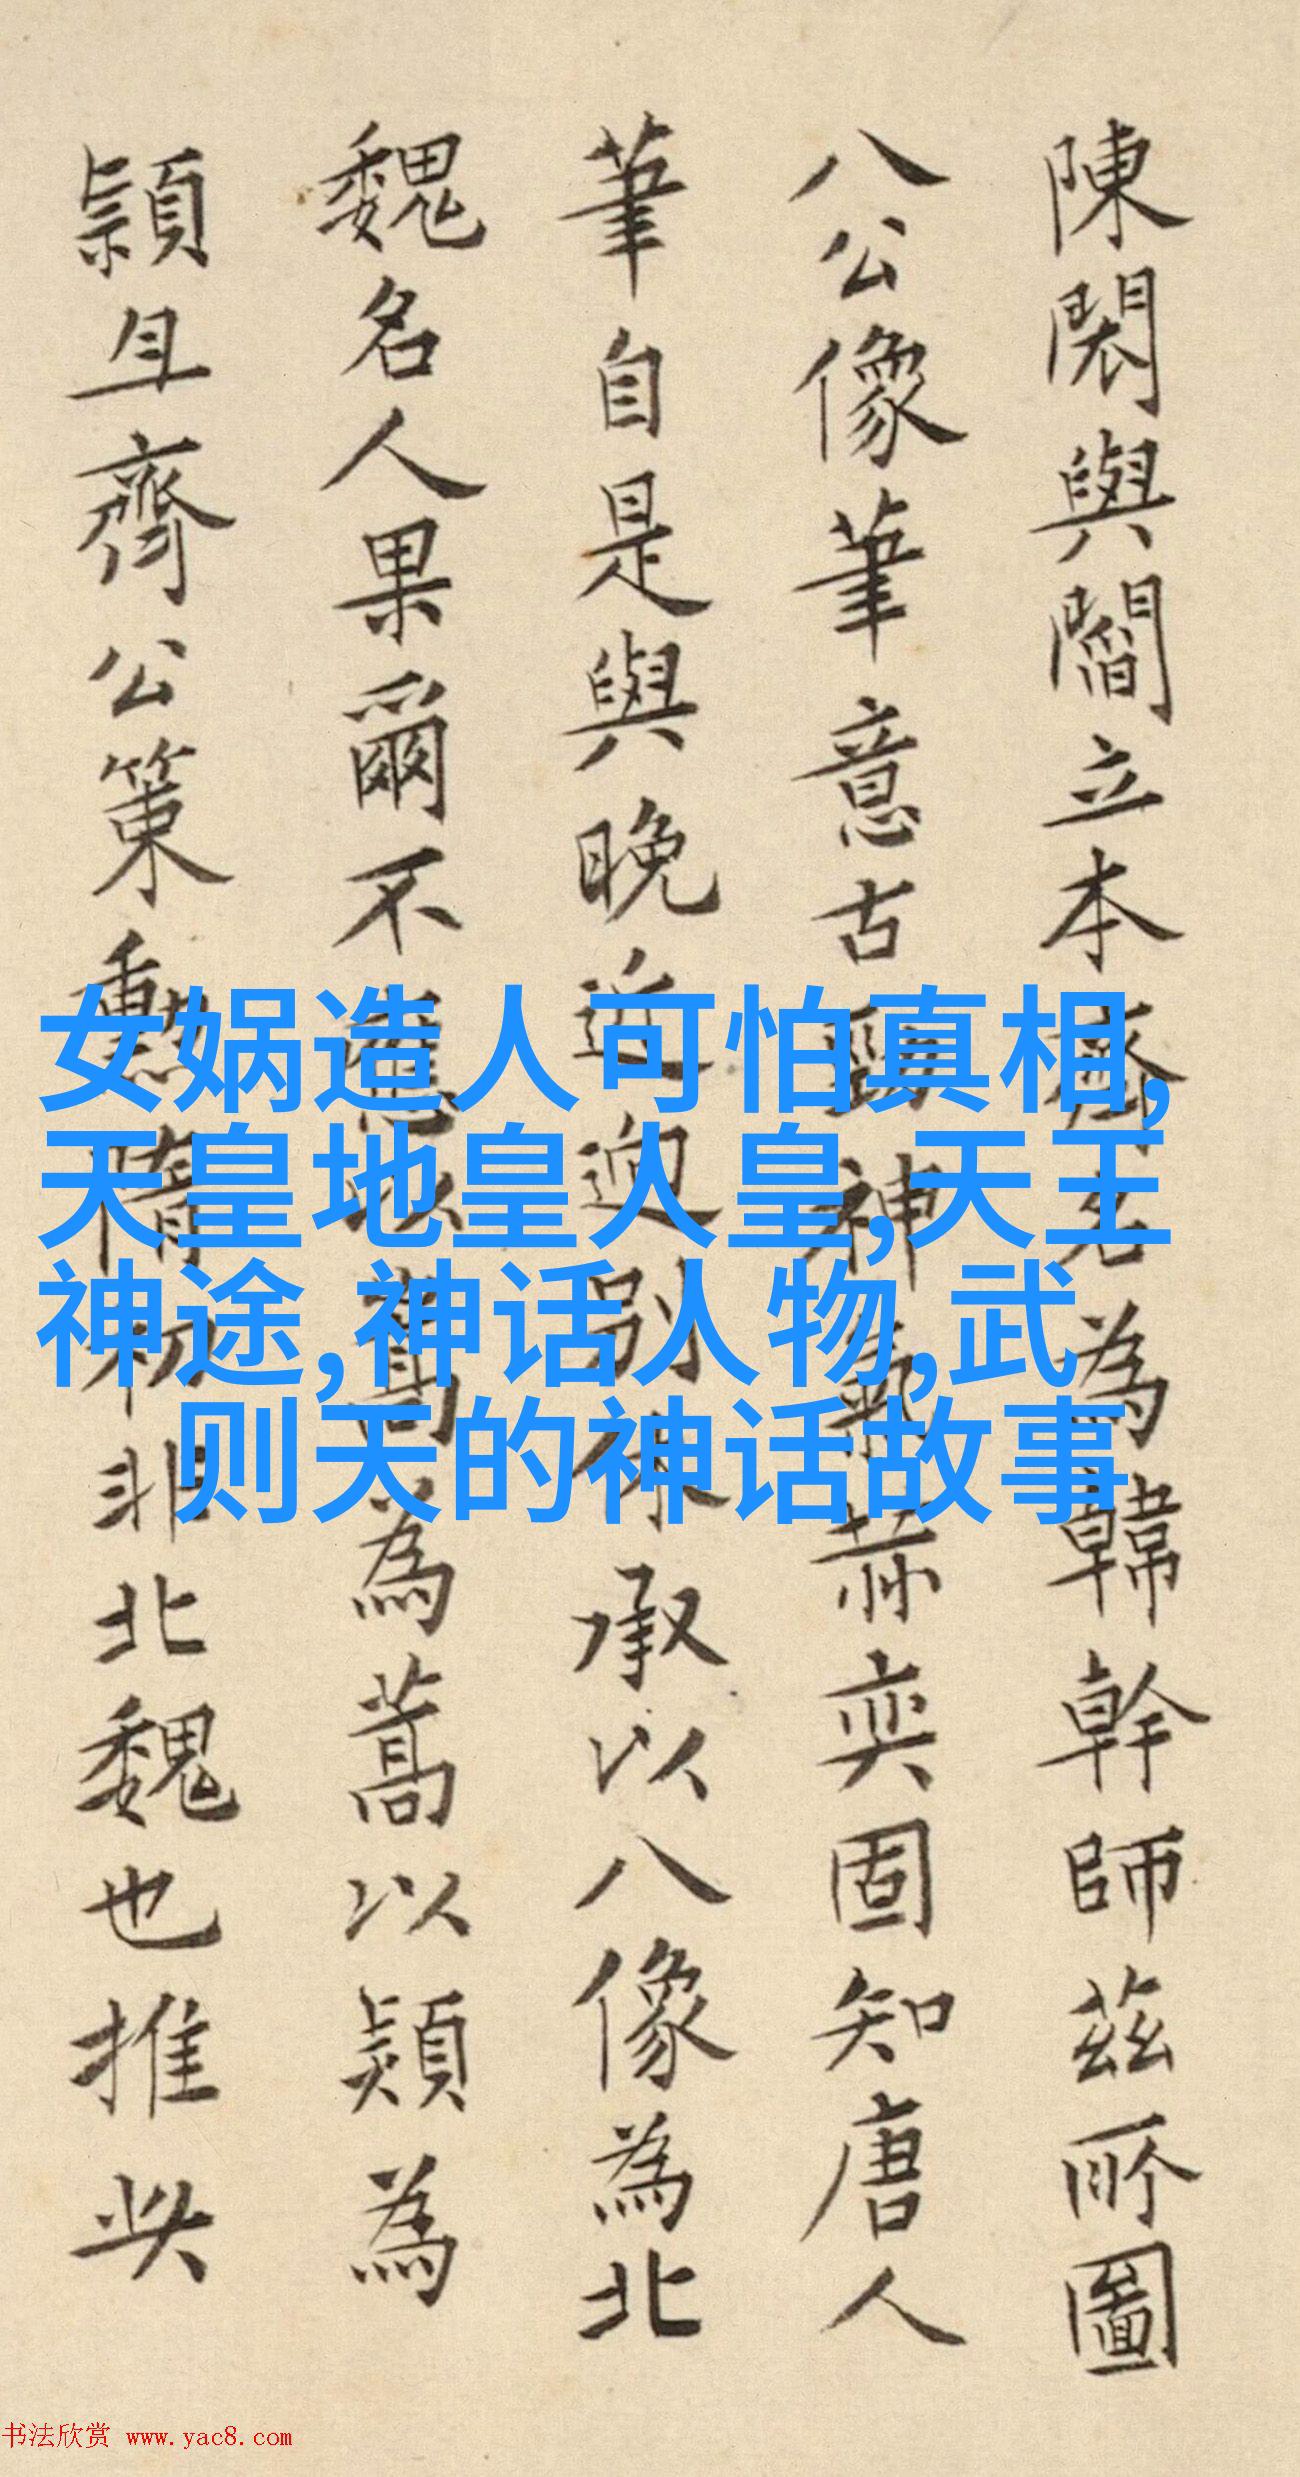 陳閎與閻立本齊名為韓幹師茲所圖
八公像筆意古勁神氣赫奕固知唐人
筆自是與晚近迥別休承以八像為北
魏名人果爾不應以嵩為蒿以頴為
頴且齊公策勳隋初非北魏也推此
女娲造人可怕真相,
天皇地皇人皇,天王
神途,神话人物,武
则天的神话故事
书法欣赏 www.yac8.com